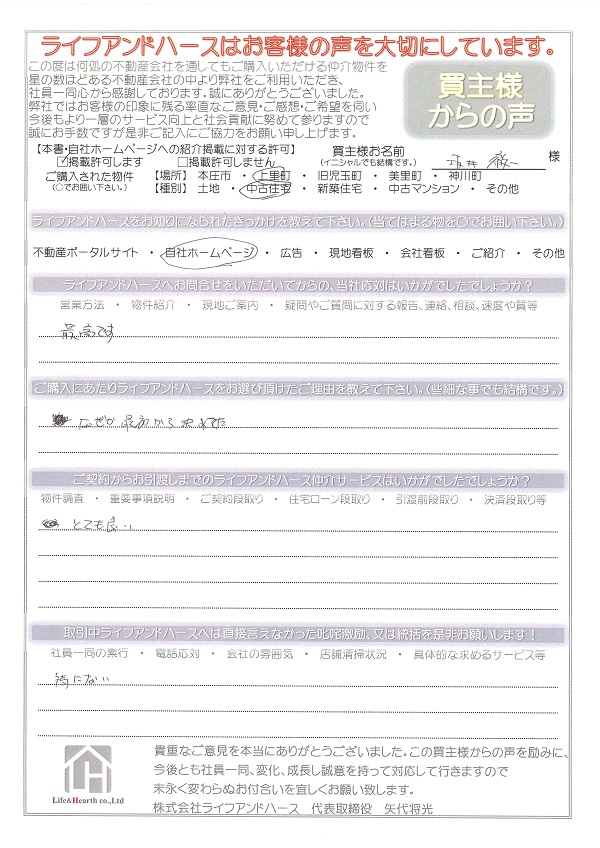 ライフアンドハースはお客様の声を大切にしています。
この度は何処の不動産会社を通してもご購入いただける仲介物件を
星の数ほどある不動産会社の中より弊社をご利用いただき、
社員一同心から感謝しております。誠にありがとうございました。
弊社ではお客様の印象に残る率直なご意見・ご感想・ご希望を伺い
今後もより一層のサービス向上と社会貢献に努めて参りますので
誠にお手数ですが是非ご記入にご協力をお願い申し上げます。
買主様
からの声
【本書・自社ホームページへの紹介掲載に対する許可】
☑掲載許可します □掲載許可しません
買主様お名前
(イニシャルでも結構です。)
様
ご購入された物件
(○でお囲い下さい。)
【場所】 本庄市 ・ 上里町 ・ 旧児玉町 ・ 美里町 ・ 神川町
【種別】 土地 ・ 中古住宅 ・ 新築住宅 ・ 中古マンション ・ その他
ライフアンドハースをお知りになられたきっかけを教えて下さい。(当てはまる物を○でお囲い下さい。)
不動産ポータルサイト ・ 自社ホームページ ・ 広告 ・ 現地看板 ・ 会社看板 ・ ご紹介 ・ その他
ライフアンドハースへお問合せをいただいてからの、当社応対はいかがでしたでしょうか？
営業方法 ・ 物件紹介 ・ 現地ご案内 ・ 疑問やご質問に対する報告、連絡、相談、速度や質等
最高です
ご購入にあたりライフアンドハースをお選び頂けたご理由を教えて下さい。(些細な事でも結構です。)
なぜか最初から
ご契約からお引渡しまでのライフアンドハース仲介サービスはいかがでしたでしょうか？
物件調査 ・ 重要事項説明 ・ ご契約段取り ・ 住宅ローン段取り ・ 引渡前段取り ・ 決済段取り等
とても良い
取引中ライフアンドハースへは直接言えなかった叱咤激励、又は統括を是非お願いします！
社員一同の素行 ・ 電話応対 ・ 会社の雰囲気 ・ 店舗清掃状況 ・ 具体的な求めるサービス等
特にない
貴重なご意見を本当にありがとうございました。この買主様からの声を励みに、
今後とも社員一同、変化、成長し誠意を持って対応して行きますので
末永く変わらぬお付合いを宜しくお願い致します。
Life&Hearth co.,Ltd
株式会社ライフアンドハース 代表取締役 矢代将光